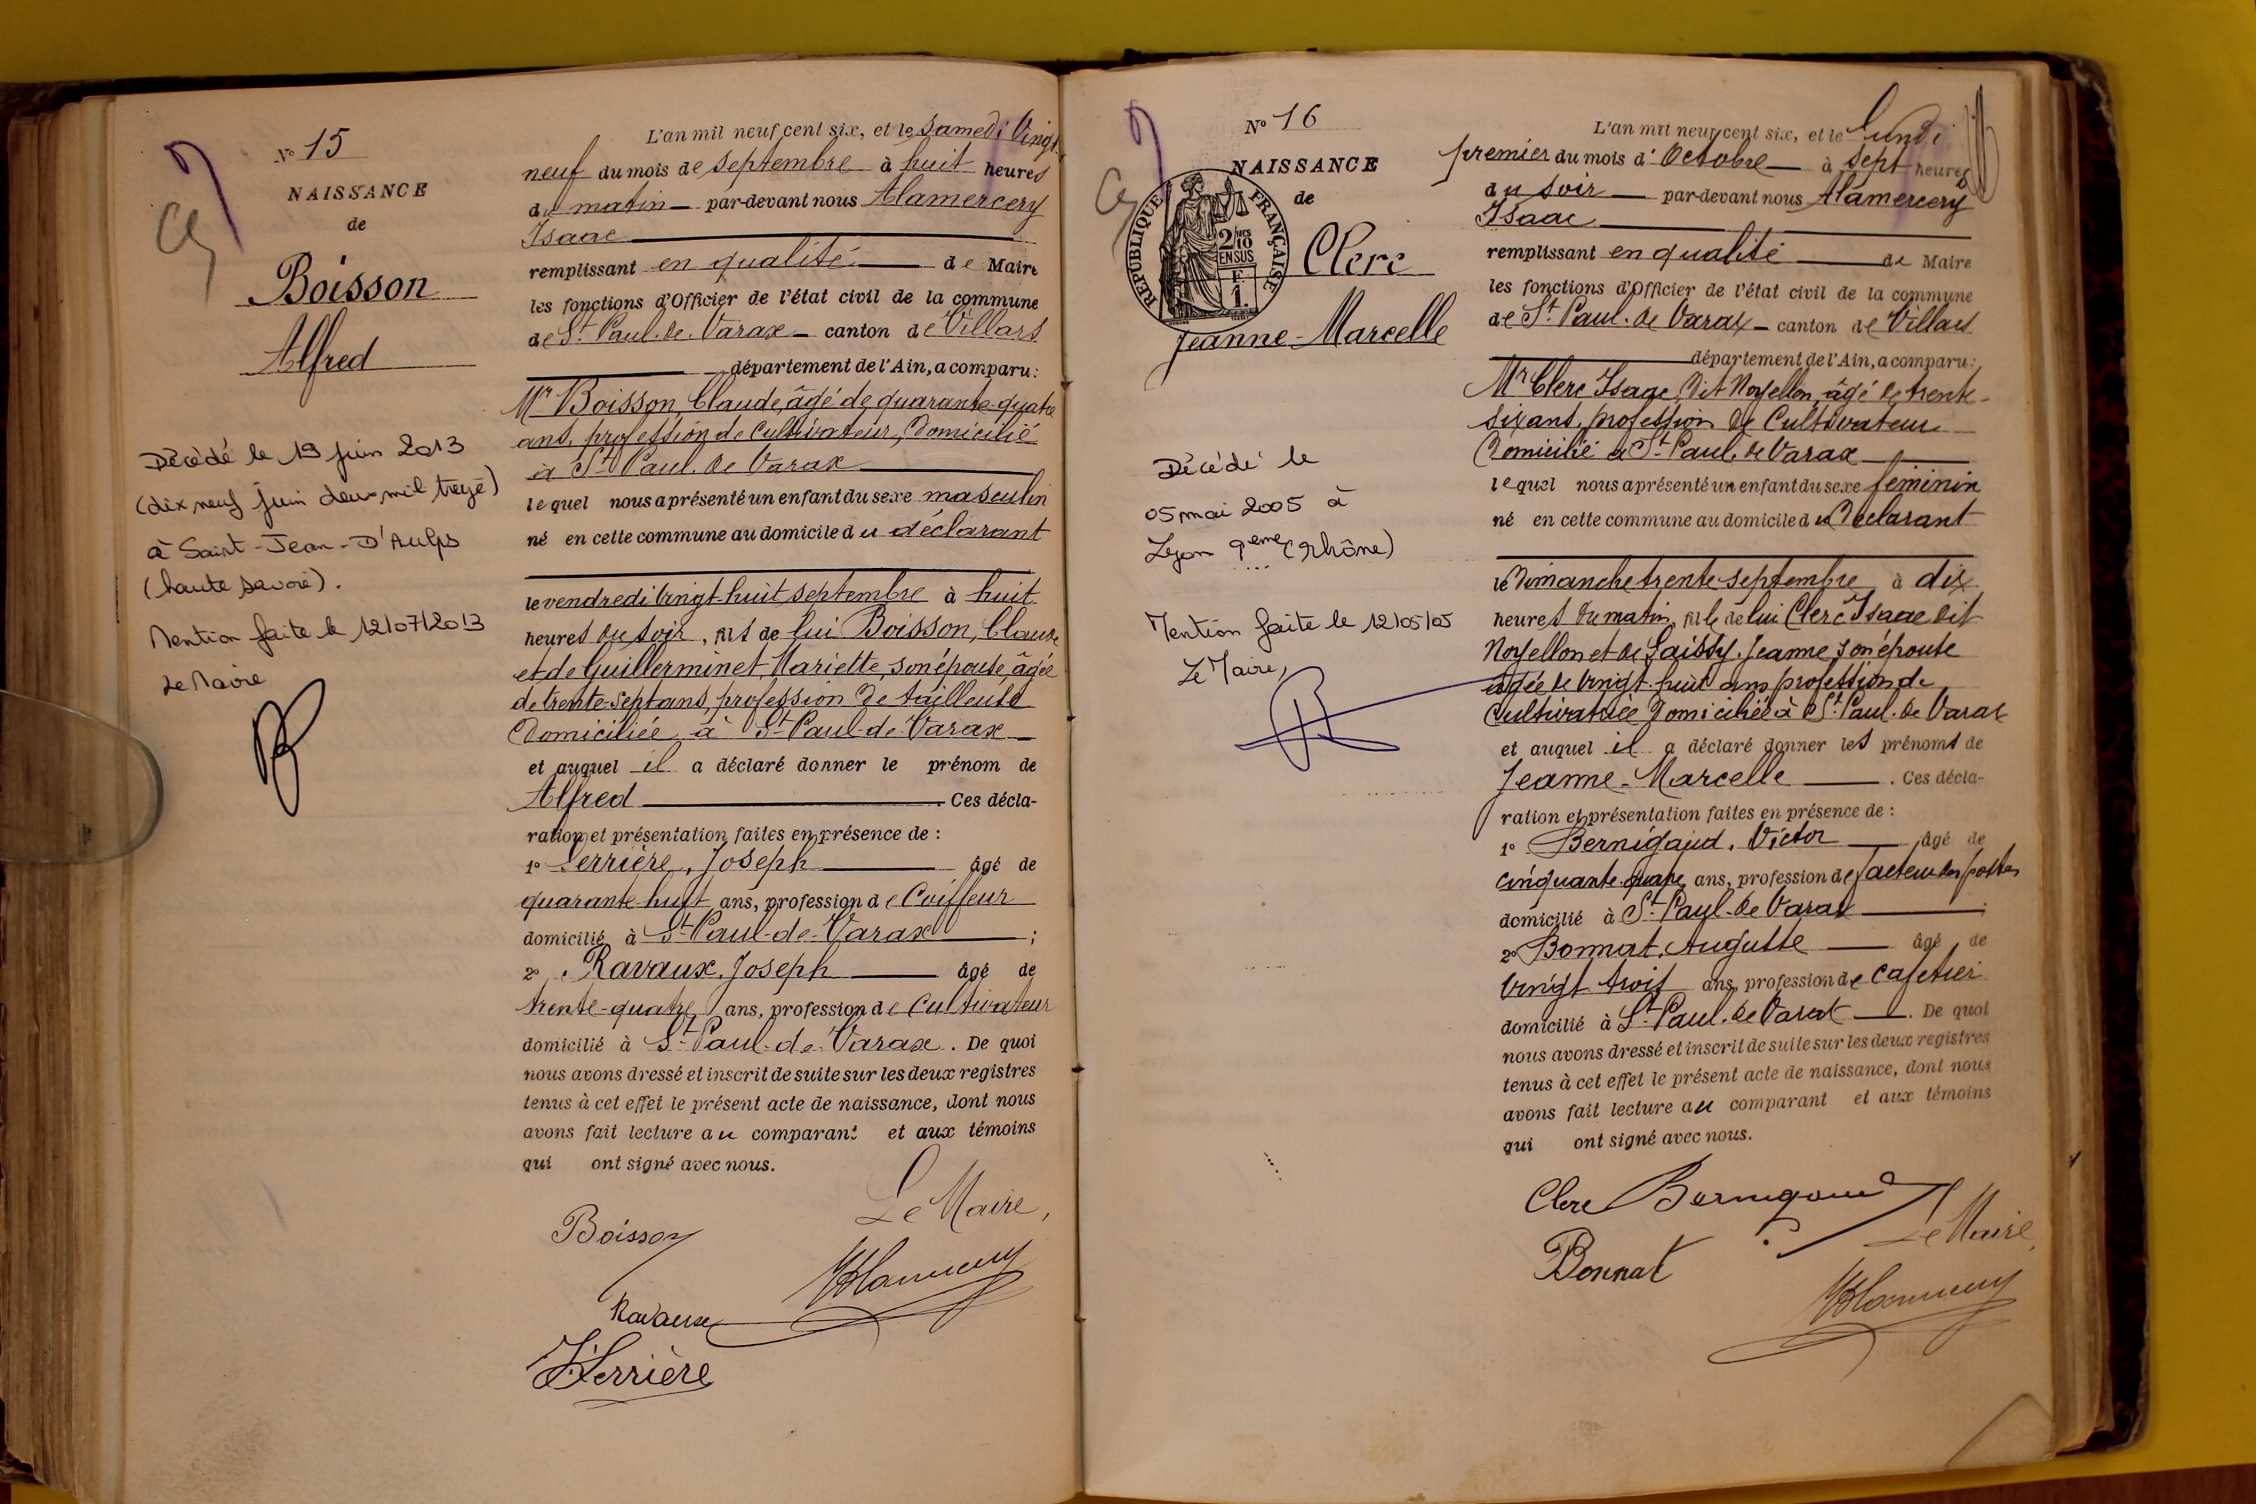 N° 15
NAISSANCE
de
Boisson
Alfred
Décédé le 19 juin 2013
(dix neuf juin deux mil treize)
à Saint-Jean-D'Aulps
(haute savoie).
Mention faite le 12/07/2013
Le Maire
L'an mil neuf cent six, et le Samedi Vingt
neuf du mois de septembre à huit heures
du matin par-devant nous Alamercery
Isaac
remplissant en qualité de Maire
les fonctions d'Officier de l'état civil de la commune
de St Paul-de-Varax canton de Villars
département de l'Ain, a comparu:
Mr Boisson, Claude, âgé de quarante-quatre
ans, profession de Cultivateur, Domicilié
à St Paul de Varax
lequel nous a présenté un enfant du sexe masculin
né en cette commune au domicile du déclarant
le vendredi vingt-huit septembre à huit
heures du soir, fils de lui Boisson, Claude
et de Guillerminet, Mariette, son épouse, âgée
de trente-sept ans, profession de tailleuse
Domiciliée à St Paul-de-Varax
et auquel il a déclaré donner le prénom de
Alfred. Ces décla-
ration et présentation faites en présence de :
1° Serrière, Joseph âgé de
quarante-huit ans, profession de Coiffeur
domicilié à St Paul-de-Varax ;
2° Ravaux, Joseph âgé de
trente-quatre ans, profession de Cultivateur
domicilié à St Paul-de-Varax. De quoi
nous avons dressé et inscrit de suite sur les deux registres
tenus à cet effet le présent acte de naissance, dont nous
avons fait lecture au comparant et aux témoins
qui ont signé avec nous.
Le Maire,
Boisson
Ravaux
J. Serrière
N° 16
NAISSANCE
de
RÉPUBLIQUE FRANÇAISE
2/10
EN SUS
F.
1.
Clerc
Jeanne-Marcelle
Décédé le
05 mai 2005 à
Lyon 9eme (Rhône)
Mention faite le 12/05/05
Le Maire,
L'an mil neuf cent six, et le Lundi
premier du mois d'Octobre à sept heures
du soir par-devant nous Alamercery
Isaac
remplissant en qualité de Maire
les fonctions d'Officier de l'état civil de la commune
de St Paul-de Varax canton de Villars
département de l'Ain, a comparu:
Mr Clerc Isaac, dit Noyellon, âgé de trente-
six ans, profession de Cultivateur
Domicilié à St Paul, de Varax
lequel nous a présenté un enfant du sexe féminin
né en cette commune au domicile du Déclarant
le Dimanche trente septembre à dix
heures du matin, fille de lui Clerc Isaac dit
Noyellon et de Saissy, Jeanne, son épouse
agée de vingt-huit ans profession de
Cultivatrice Domiciliée à St Paul-de Varax
et auquel il a déclaré donner les prénoms de
Jeanne-Marcelle. Ces décla-
ration et présentation faites en présence de :
1° Bernigaud, Victor âgé de
cinquante-quatre ans, profession de facteur des postes
domicilié à St Paul-de Varax ;
2° Bonnat, Auguste âgé de
vingt trois ans, profession de Cafetier
domicilié à St Paul-de Varax. De quoi
nous avons dressé et inscrit de suite sur les deux registres
tenus à cet effet le présent acte de naissance, dont nous
avons fait lecture au comparant et aux témoins
qui ont signé avec nous.
Clerc Bernigaud
Le Maire,
Bonnat